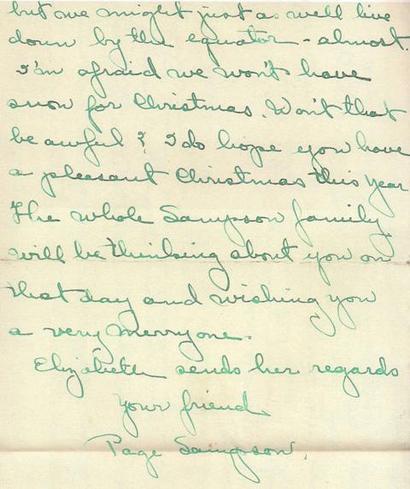 but we might just as well live
down by the equator - almost.
I'm afraid we won't have
snow for Christmas. Won't that
be awful? I do hope you have
a pleasant Christmas this year
The whole Sampson family
will be thinking about you on
that day and wishing you
a very merry one.
Elizabeth sends her regards
Your friend
Page Sampson.